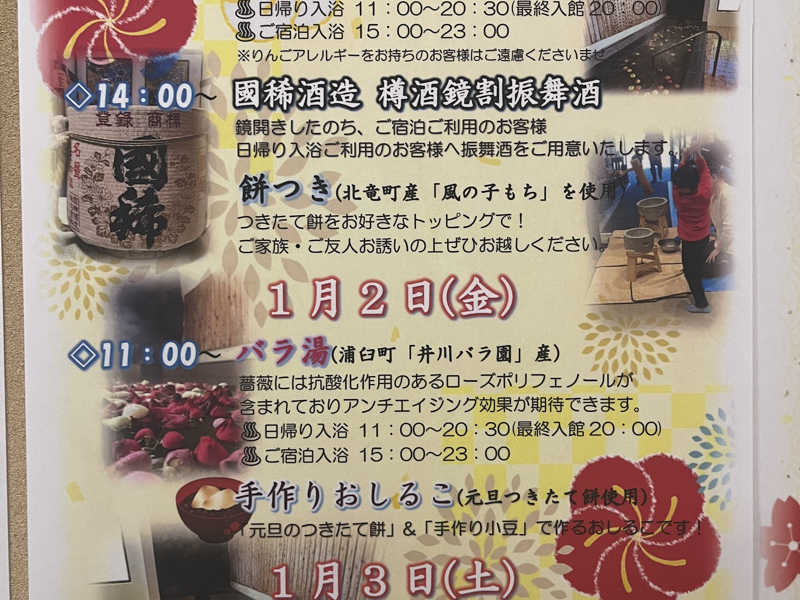 ♨日帰り入浴 11：00～20：30(最終入館20：00)
♨ご宿泊入浴 15：00～23：00
※りんごアレルギーをお持ちのお客様はご遠慮くださいませ
◇14：00～ 國稀酒造 樽酒鏡割振舞酒
登録 商標
國稀
鏡開きしたのち、ご宿泊ご利用のお客様
日帰り入浴ご利用のお客様へ振舞酒をご用意いたします。
餅つき(北竜町産「風の子もち」を使用)
つきたて餅をお好きなトッピングで！
ご家族・ご友人お誘いの上ぜひお越しください。
1月2日(金)
◇11：00～ バラ湯(浦臼町「井川バラ園」産)
薔薇には抗酸化作用のあるローズポリフェノールが
含まれておりアンチエイジング効果が期待できます。
♨日帰り入浴 11：00～20：30(最終入館20：00)
♨ご宿泊入浴 15：00～23：00
手作りおしるこ(元旦つきたて餅使用)
「元旦のつきたて餅」&「手作り小豆」で作るおしるこです！
1月3日(土)